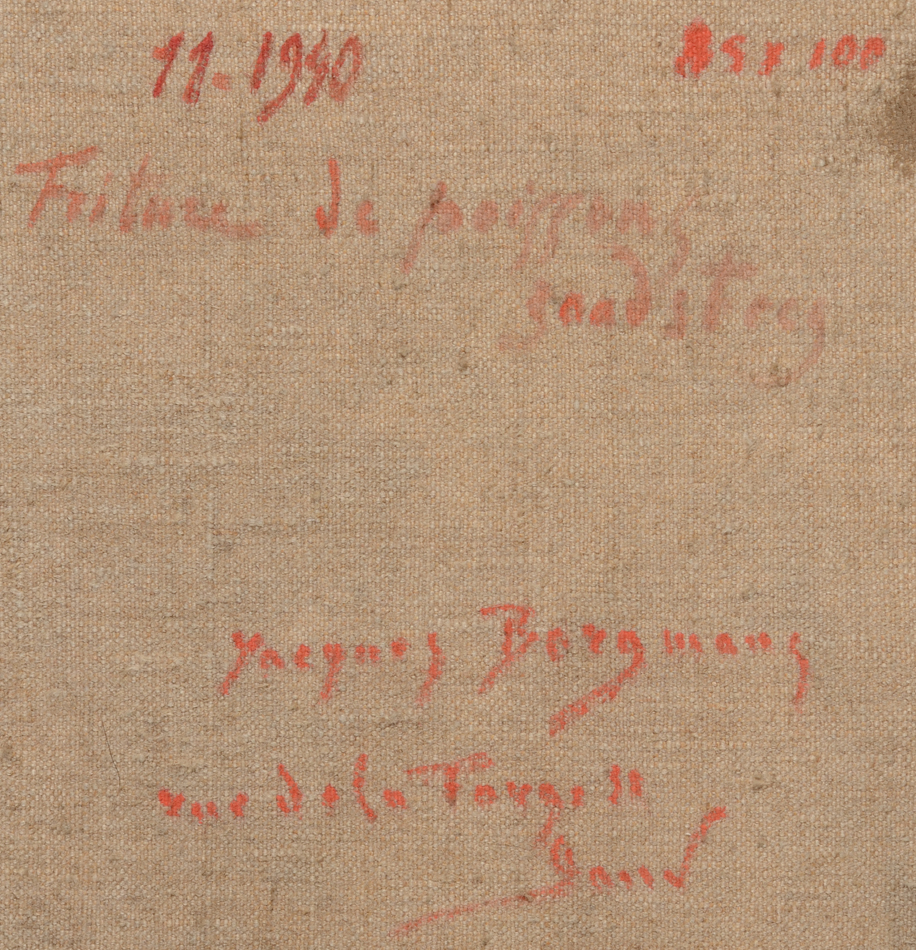 11-1940 85 x 100
Friture de poissons
Jacques Bergmans
rue de la Forge 
Gand